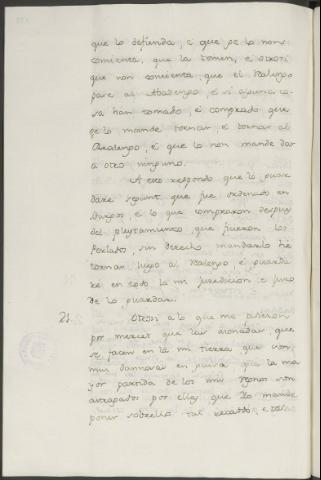 que lo defienda, e que ge lo non
consienta, que la tomen, e otrosi
que non consienta, que el Realengo
pase al Abadengo, e si alguna co-
sa han tomado, e comprado que
ge lo mande tornar e tornar al
Realengo, e que lo non mande dar
a otro ninguno.
A esto respondo que lo guar
daré segunt que fue ordenado en
Burgos, e lo que compraron despues
del pleyteamiento, que fueron los
Perlados, sin derecho mandarlo he
tornar luego al Realengo e guarda
ré en todo la mi juredicion e juro
de lo guardar.
21. Otrosi a lo que me pidieron
por merced que las asonadas, que
se facen en la mi tierra que son
muy dannosas en guisa que la ma
yor partida de los mis regnos son
astragados por ellas que Yo mande
poner sobrello tal recabdo, e